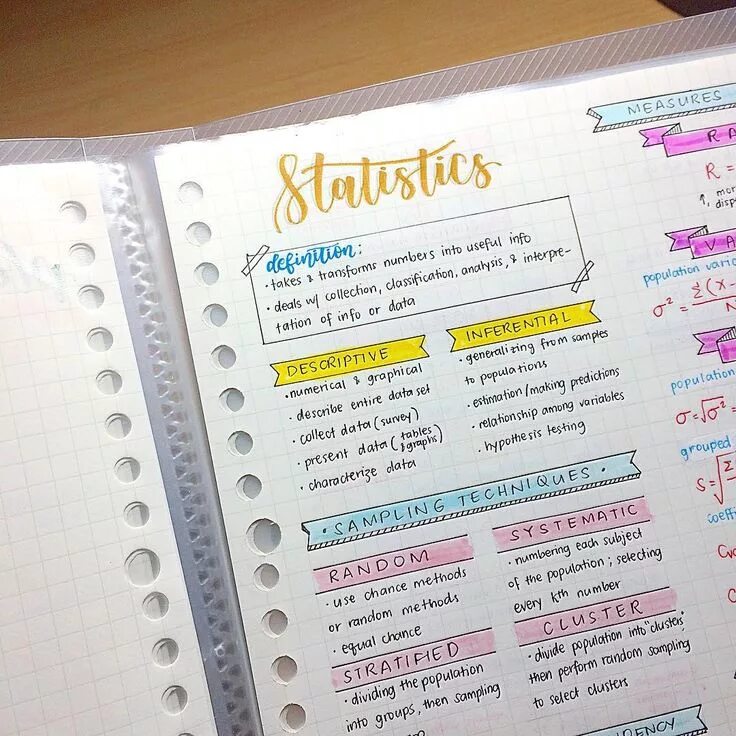 Statistics
definition:
• takes & transforms numbers into useful info
• deals w/ collection, classification, analysis, & interpre-
tation of info or data
DESCRIPTIVE
• numerical & graphical
• describe entire data set
• collect data (survey)
• present data (tables
& graphs)
• characterize data
INFERENTIAL
• generalizing from samples
to populations
• estimation/making predictions
• relationship among variables
• hypothesis testing
• SAMPLING TECHNIQUES •
RANDOM
• use chance methods
or random methods
• equal chance
SYSTEMATIC
• numbering each subject
of the population; selecting
every kth number
STRATIFIED
• dividing the population
into groups, then sampling
CLUSTER
• divide population into "clusters",
then perform random sampling
to select clusters
MEASURES
RA
R =
↑, mor
disp
VA
population varia
σ² = Σ(X-
N
population
σ = √σ² =
grouped
S = √Σ
coeffi
Cva